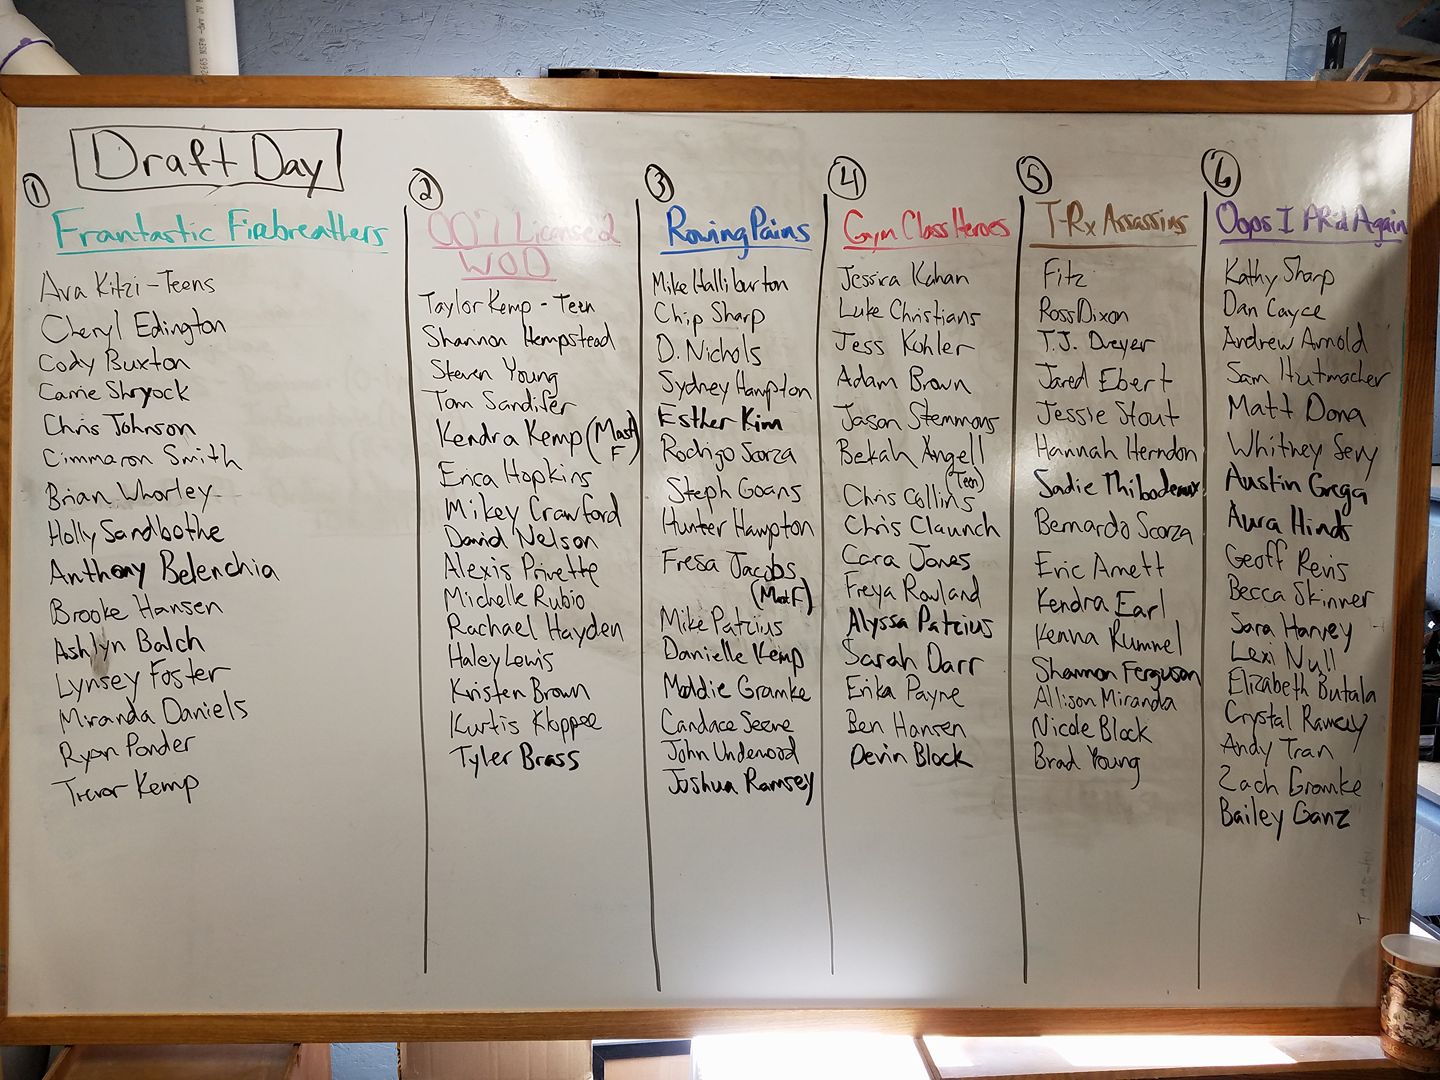 Draft Day
1
Frantastic Firebreathers
Ava Kitzi - Teens
Cheryl Edington
Cody Buxton
Carrie Shryock
Chris Johnson
Cimmaron Smith
Brian Whorley
Holly Sandbothe
Anthony Belenchia
Brooke Hansen
Ashlyn Balch
Lynsey Foster
Miranda Daniels
Ryan Ponder
Trevor Kemp
2
007 License 2
WOD
Taylor Kemp - Teen
Shannon Hempstead
Steven Young
Tom Sandifer
Kendra Kemp (Mast
F)
Erica Hopkins
Mikey Crawford
David Nelson
Alexis Privette
Michelle Rubio
Rachael Hayden
Haley Lewis
Kristen Brown
Kurtis Kloppee
Tyler Brass
3
Rowing Pains
Mike Halliburton
Chip Sharp
D. Nichols
Sydney Hampton
Esther Kim
Rodrigo Scorza
Steph Goans
Hunter Hampton
Fresa Jacobs
(Mast F)
Mike Patzius
Danielle Kemp
Maddie Gramke
Candace Seene
John Underwood
Joshua Ramsey
4
Gym Class Heroes
Jessica Kahan
Luke Christians
Jess Kohler
Adam Brown
Jason Stemmons
Bekah Angell
(Teen)
Chris Collins
Chris Claunch
Cara Jones
Freya Rowland
Alyssa Patzius
Sarah Darr
Erika Payne
Ben Hansen
Devin Block
5
T-Rx Assassins
Fitz
Ross Dixon
T.J. Dreyer
Jared Ebert
Jessie Stout
Hannah Herndon
Sadie Thibodeaux
Bernardo Scorza
Eric Arnett
Kendra Earl
Kenna Rummel
Shannon Ferguson
Allison Miranda
Nicole Block
Brad Young
6
Oops I PR'd Again
Kathy Sharp
Dan Cayce
Andrew Arnold
Sam Hutmacher
Matt Dona
Whitney Sevy
Austin Grega
Aura Hinds
Geoff Revis
Becca Skinner
Sara Harvey
Lexi Null
Elizabeth Butala
Crystal Ramsey
Andy Tran
Zach Gramke
Bailey Ganz